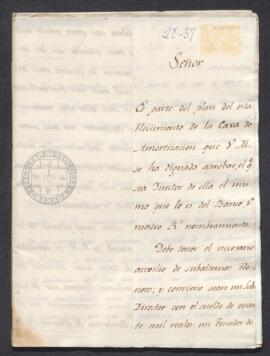 28-37
Señor
Es parte del plan del esta
blecimiento de la Caxa de
Amortizacion que V. M.
se ha dignado aprobar, el q.e
sea Director de ella el mis
mo que lo es del Banco p.r
vuestro R.l nombramiento.
Debe tener el necesario
auxilio de subalternos ido
neos; y conviene sean un sub
Director con el sueldo de vein
te mil reales: un Tenedor de